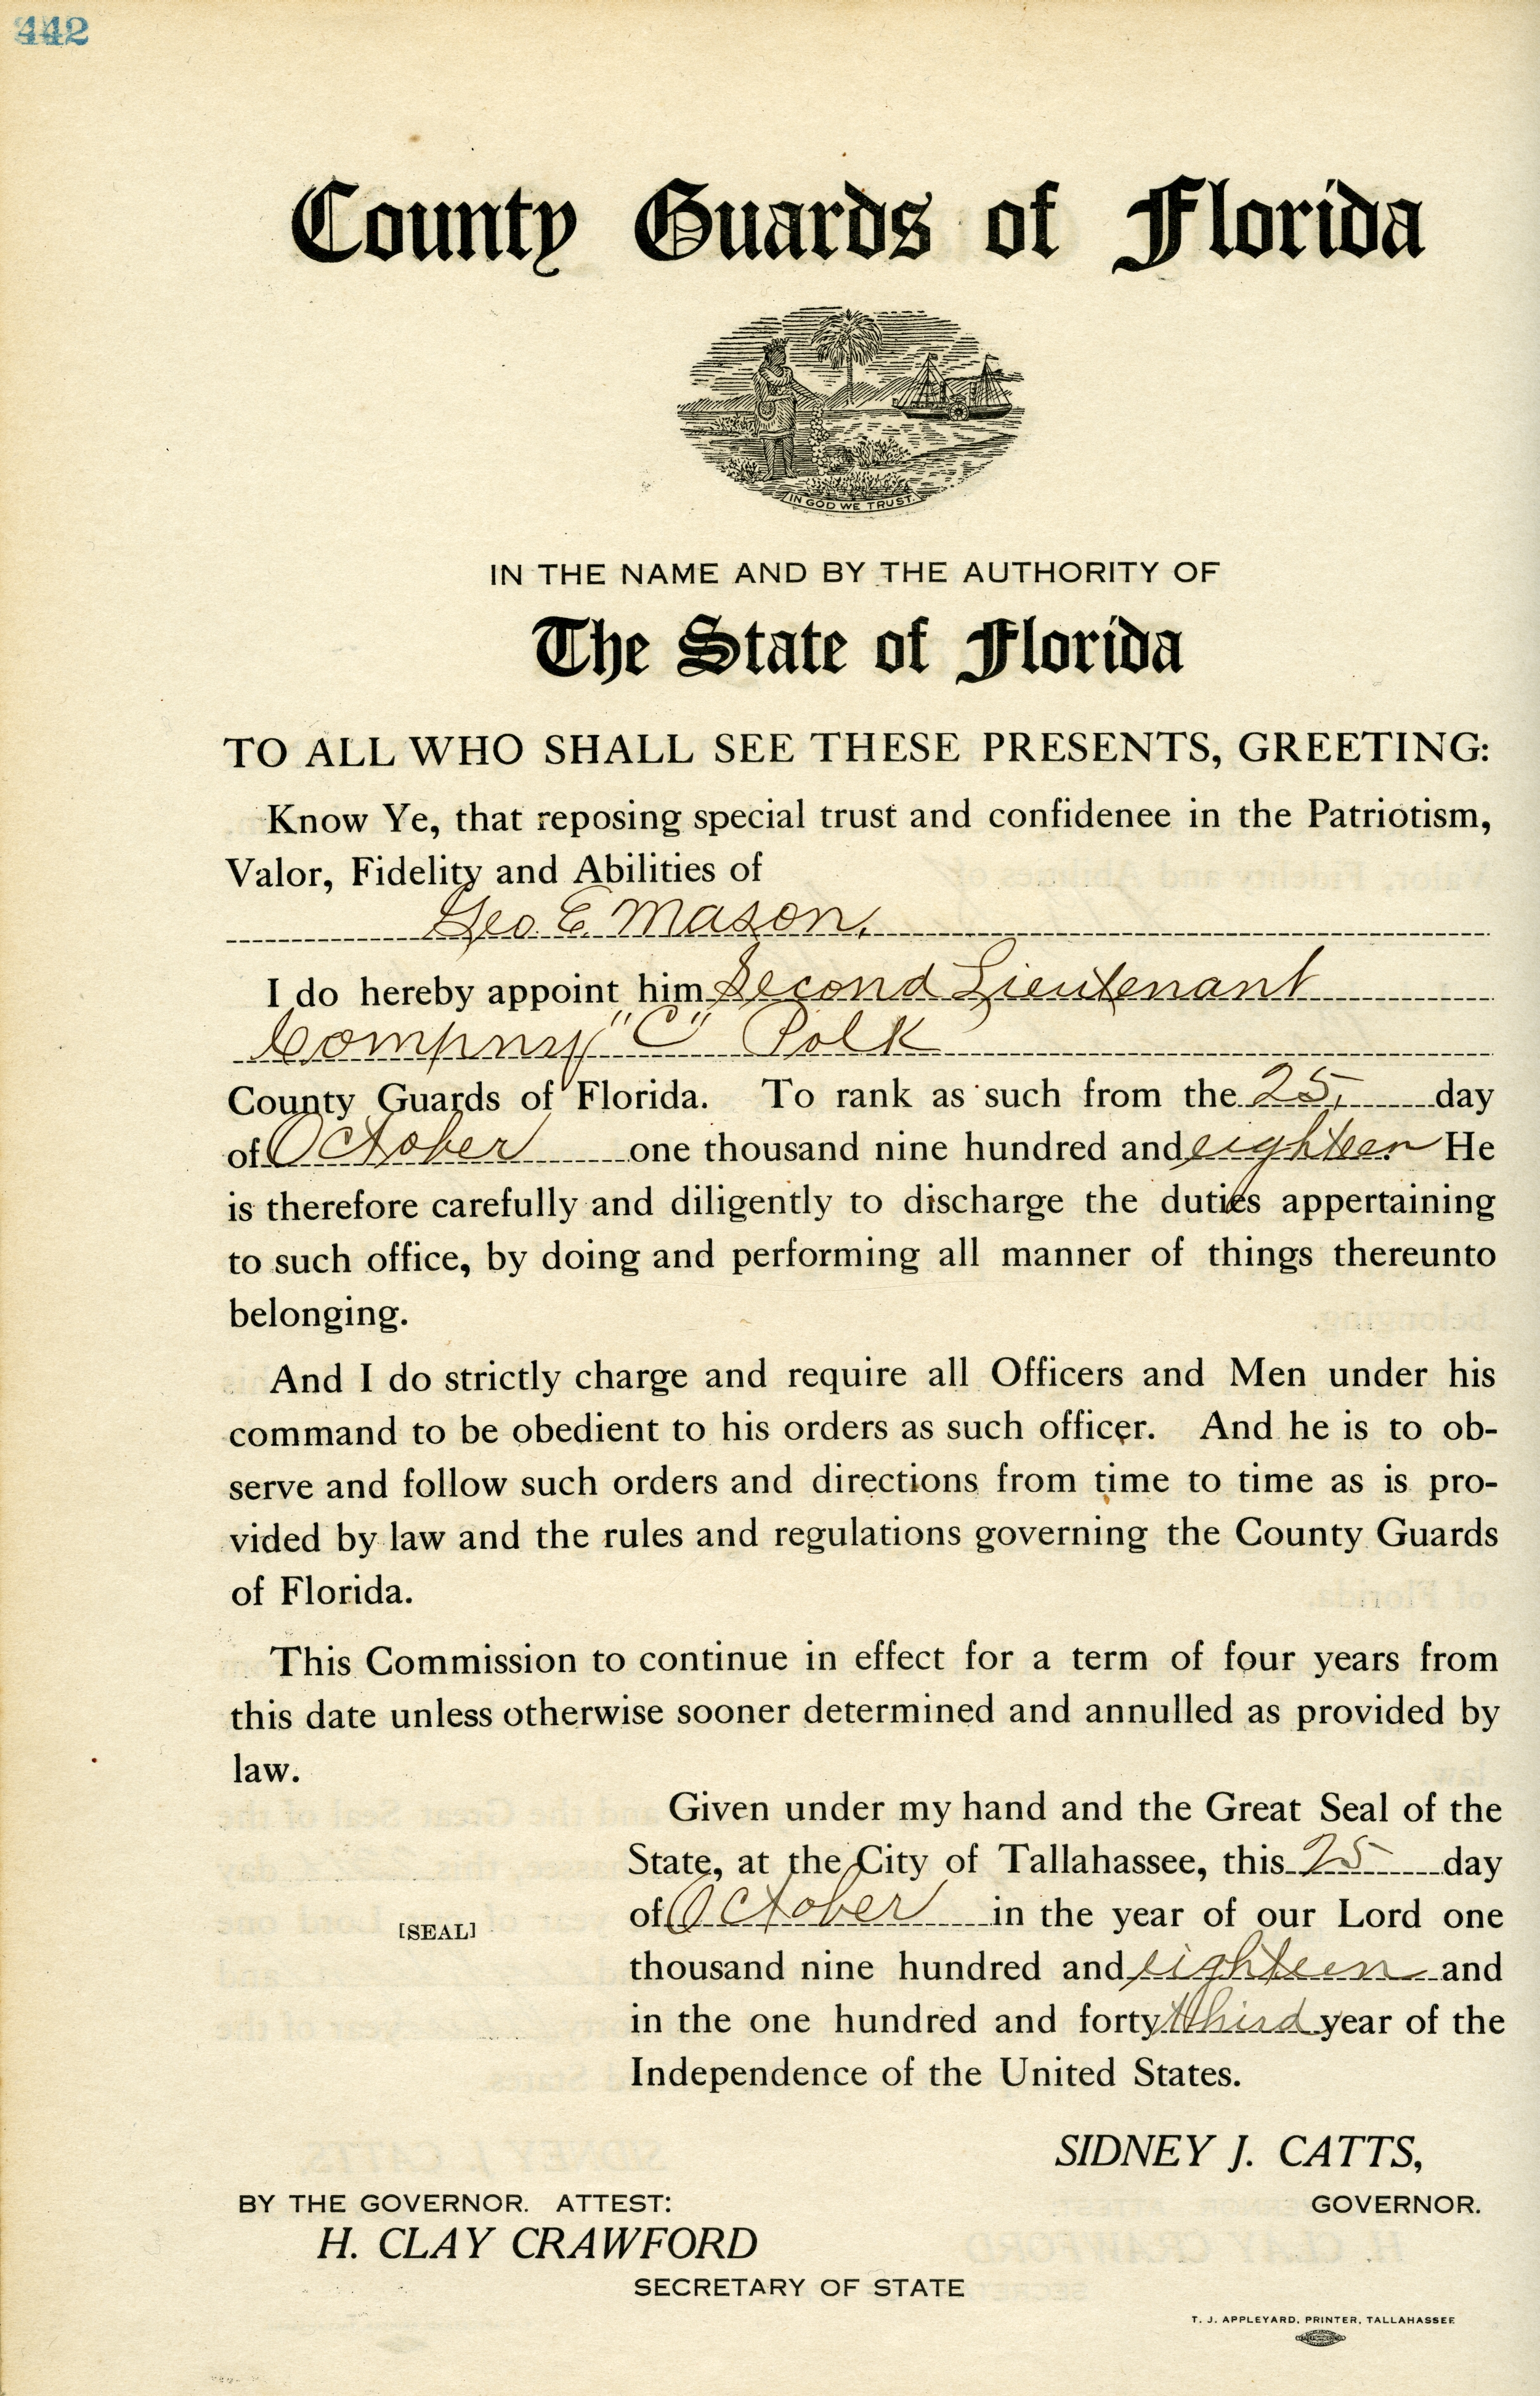 442
County Guards of Florida
IN GOD WE TRUST.
IN THE NAME AND BY THE AUTHORITY OF
The State of Florida
TO ALL WHO SHALL SEE THESE PRESENTS, GREETING:
Know Ye, that reposing special trust and confidenee in the Patriotism,
Valor, Fidelity and Abilities of
Geo. E. Mason.
I do hereby appoint him Second Lieutenant
Compny "C" Polk
County Guards of Florida. To rank as such from the 25, day
of October one thousand nine hundred and eighteen He
is therefore carefully and diligently to discharge the duties appertaining
to such office, by doing and performing all manner of things thereunto
belonging.
And I do strictly charge and require all Officers and Men under his
command to be obedient to his orders as such officer. And he is to ob-
serve and follow such orders and directions from time to time as is pro-
vided by law and the rules and regulations governing the County Guards
of Florida.
This Commission to continue in effect for a term of four years from
this date unless otherwise sooner determined and annulled as provided by
law.
Given under my hand and the Great Seal of the
State, at the City of Tallahassee, this 25 day
of October in the year of our Lord one
[SEAL]
thousand nine hundred and eighteen and
in the one hundred and forty third year of the
Independence of the United States.
SIDNEY J. CATTS,
BY THE GOVERNOR. ATTEST: GOVERNOR.
H. CLAY CRAWFORD
SECRETARY OF STATE
T. J. APPLEYARD, PRINTER, TALLAHASSEE